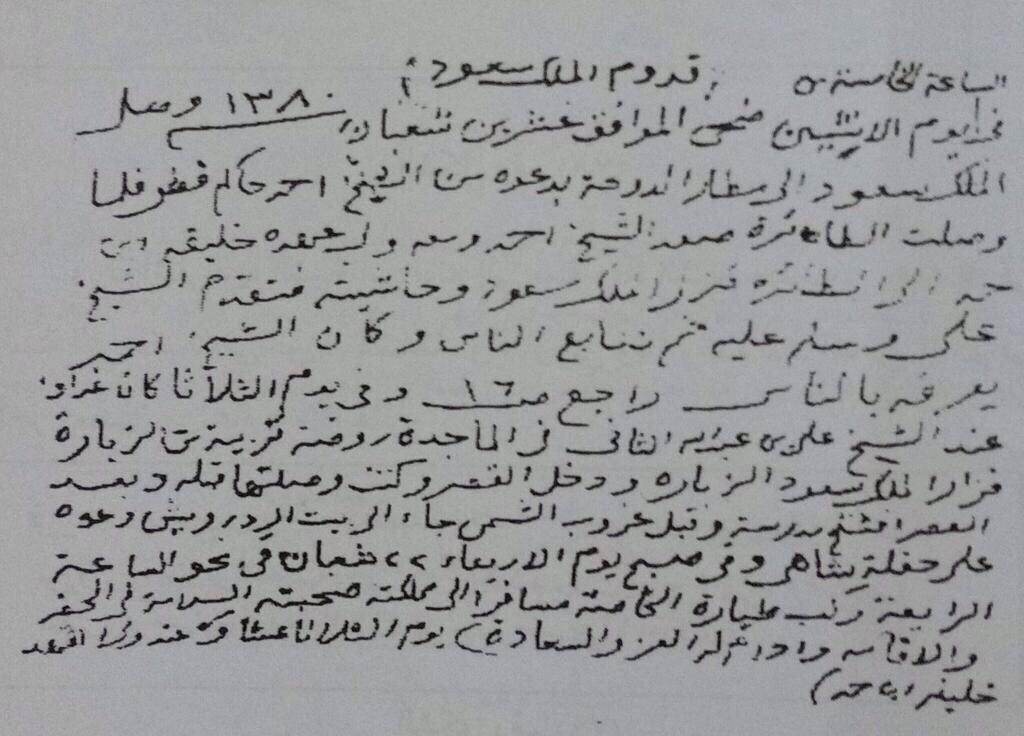 الساعة الخامسة قدوم الملك سعود
في يوم الاثنين ضحى الموافق عشرين شعبان ١٣٨٠ وصل
الملك سعود الى مطار الدوحة بدعوه من الشيخ احمد حاكم قطر فلما
وصلت الطائرة صعد الشيخ احمد ومعه ولي عهده خليفه ابن
حمد الى الطائره فنزل الملك سعود وحاشيته فتقدم الشيخ
علي وسلم عليه ثم تتابع الناس وكان الشيخ احمد
يعرفه بالناس راجع ص ١٦ وفي يوم الثلاثا كان غداه
عند الشيخ علي بن عبدالله الثاني في الماجدة روضة قريبة من الزبارة
فزار الملك سعود الزباره ودخل القصر وكنت وصلتها قبله وبعد
العصر افتتح مدرسة وقبل غروب الشمس جاء الى بيت الدرويش دعوه
على حفلة شاهي وفي صبح يوم الاربعاء ٢٢ شعبان في نحو الساعة
الرابعة ركب طيارة الخاصة مسافرا الى مملكته صحبته السلامة في السفر
والاقامه وادام له العز والسعادة) يوم الثلاثا عشاؤه عند ولي العهد
خليفه ابن حمد)